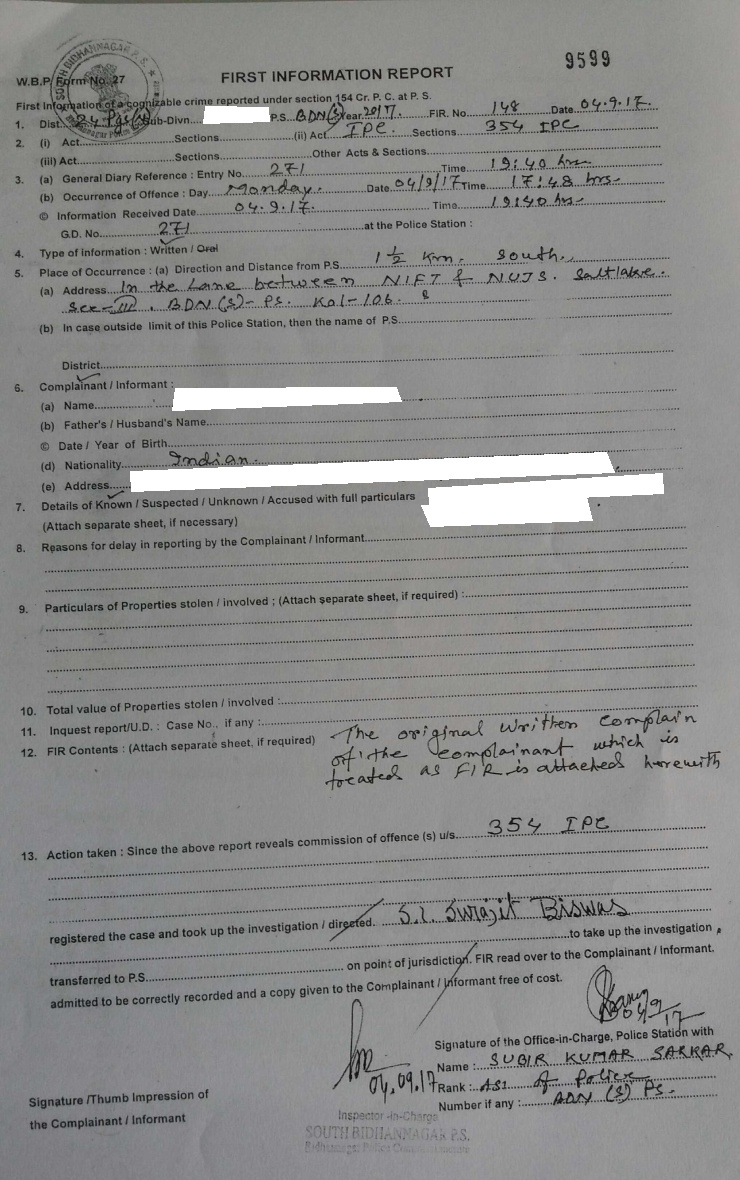 9599
SOUTH BIDHANNAGAR P.S.
W.B.P. Form No. 27
FIRST INFORMATION REPORT
First Information of a cognizable crime reported under section 154 Cr. P. C. at P. S.
1. Dist. 24 Pgs(N) Sub-Divn. P.S. BDN(S) Year 2017. FIR. No. 148 Date 04.9.17.
2. (i) Act Sections (ii) Act IPC. Sections 354 IPC
(iii) Act Sections Other Acts & Sections
3. (a) General Diary Reference : Entry No. 271 Time 19:40 hrs
(b) Occurrence of Offence : Day Monday. Date 04/9/17 Time 17:48 hrs-
© Information Received Date 04.9.17. Time 19:40 hrs-
G.D. No. 271 at the Police Station :
4. Type of Information : Written / Oral
5. Place of Occurrence : (a) Direction and Distance from P.S. 1 ½ Km. South.
(a) Address In the Lane between NIFT & NUJS. Saltlake.
Sec-III. BDN(S)- Ps. Kol-106.
(b) In case outside limit of this Police Station, then the name of P.S.
District
6. Complainant / Informant :
(a) Name
(b) Father's / Husband's Name
© Date / Year of Birth
(d) Nationality Indian.
(e) Address
7. Details of Known / Suspected / Unknown / Accused with full particulars
(Attach separate sheet, if necessary)
8. Reasons for delay in reporting by the Complainant / Informant
9. Particulars of Properties stolen / involved ; (Attach separate sheet, if required) :
10. Total value of Properties stolen / involved :
11. Inquest report/U.D. : Case No., if any :
12. FIR Contents : (Attach separate sheet, if required) The original written complain
of the complainant which is
treated as FIR is attached herewith
13. Action taken : Since the above report reveals commission of offence (s) u/s. 354 IPC
registered the case and took up the investigation / directed. S.I. Surajit Biswas
to take up the investigation,
transferred to P.S. on point of jurisdiction. FIR read over to the Complainant / Informant.
admitted to be correctly recorded and a copy given to the Complainant / Informant free of cost.
04/9/17
Signature of the Office-in-Charge, Police Station with
Name : SUBIR KUMAR SARKAR,
04.09.17 Rank : ASI of Police
Number if any : BDN (S) Ps.
Signature /Thumb Impression of
the Complainant / Informant
Inspector-in-Charge
SOUTH BIDHANNAGAR P.S.
Bidhannagar Police Commissionerate